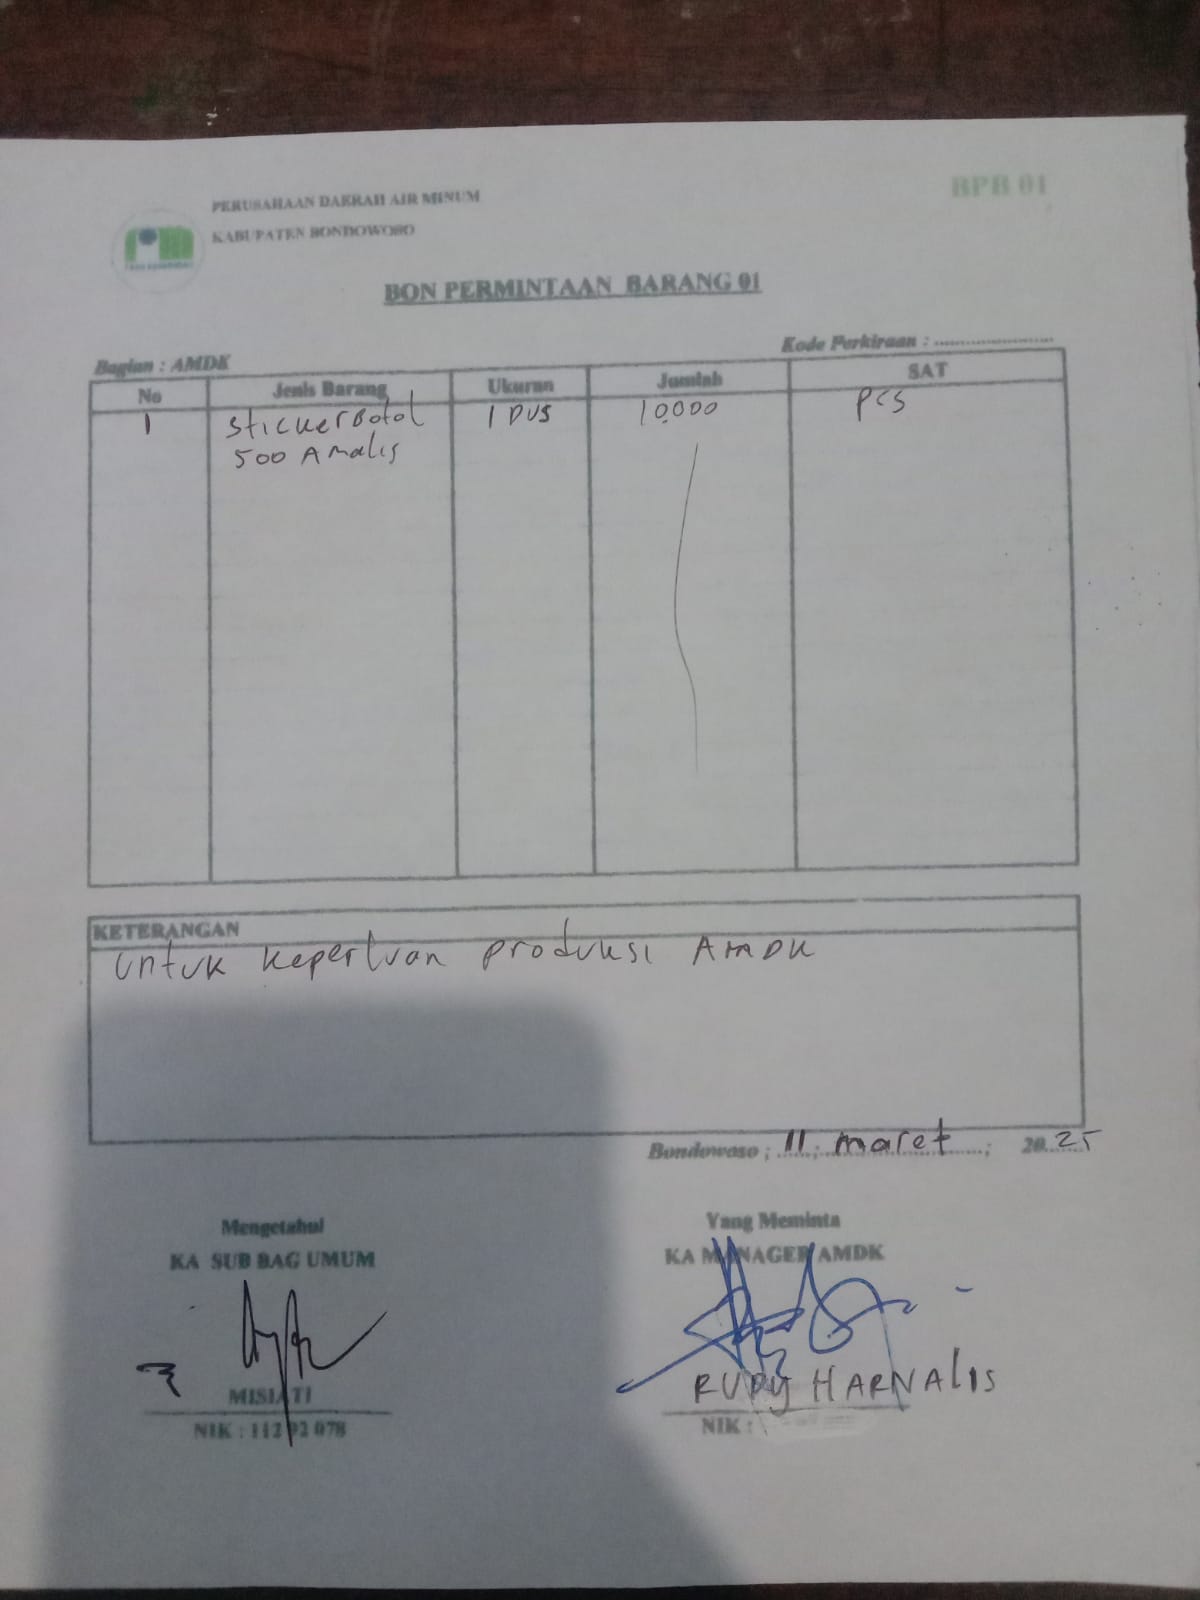 PERUSAHAAN DAERAH AIR MINUM
KABUPATEN BONDOWOSO
BPB 01
BON PERMINTAAN BARANG 01
Bagian : AMDK
Kode Perkiraan : ......................
No Jenis Barang Ukuran Jumlah SAT
1 Sticker Botol 1 DUS 10.000 PCS
500 Amalis
KETERANGAN
Untuk keperluan produksi AMDK
Bondowoso ; 11 ; maret ; 20 25
Mengetahui
KA SUB BAG UMUM
MISIATI
NIK : 112 92 078
Yang Meminta
KA MANAGER AMDK
RUDY HARNALIS
NIK :